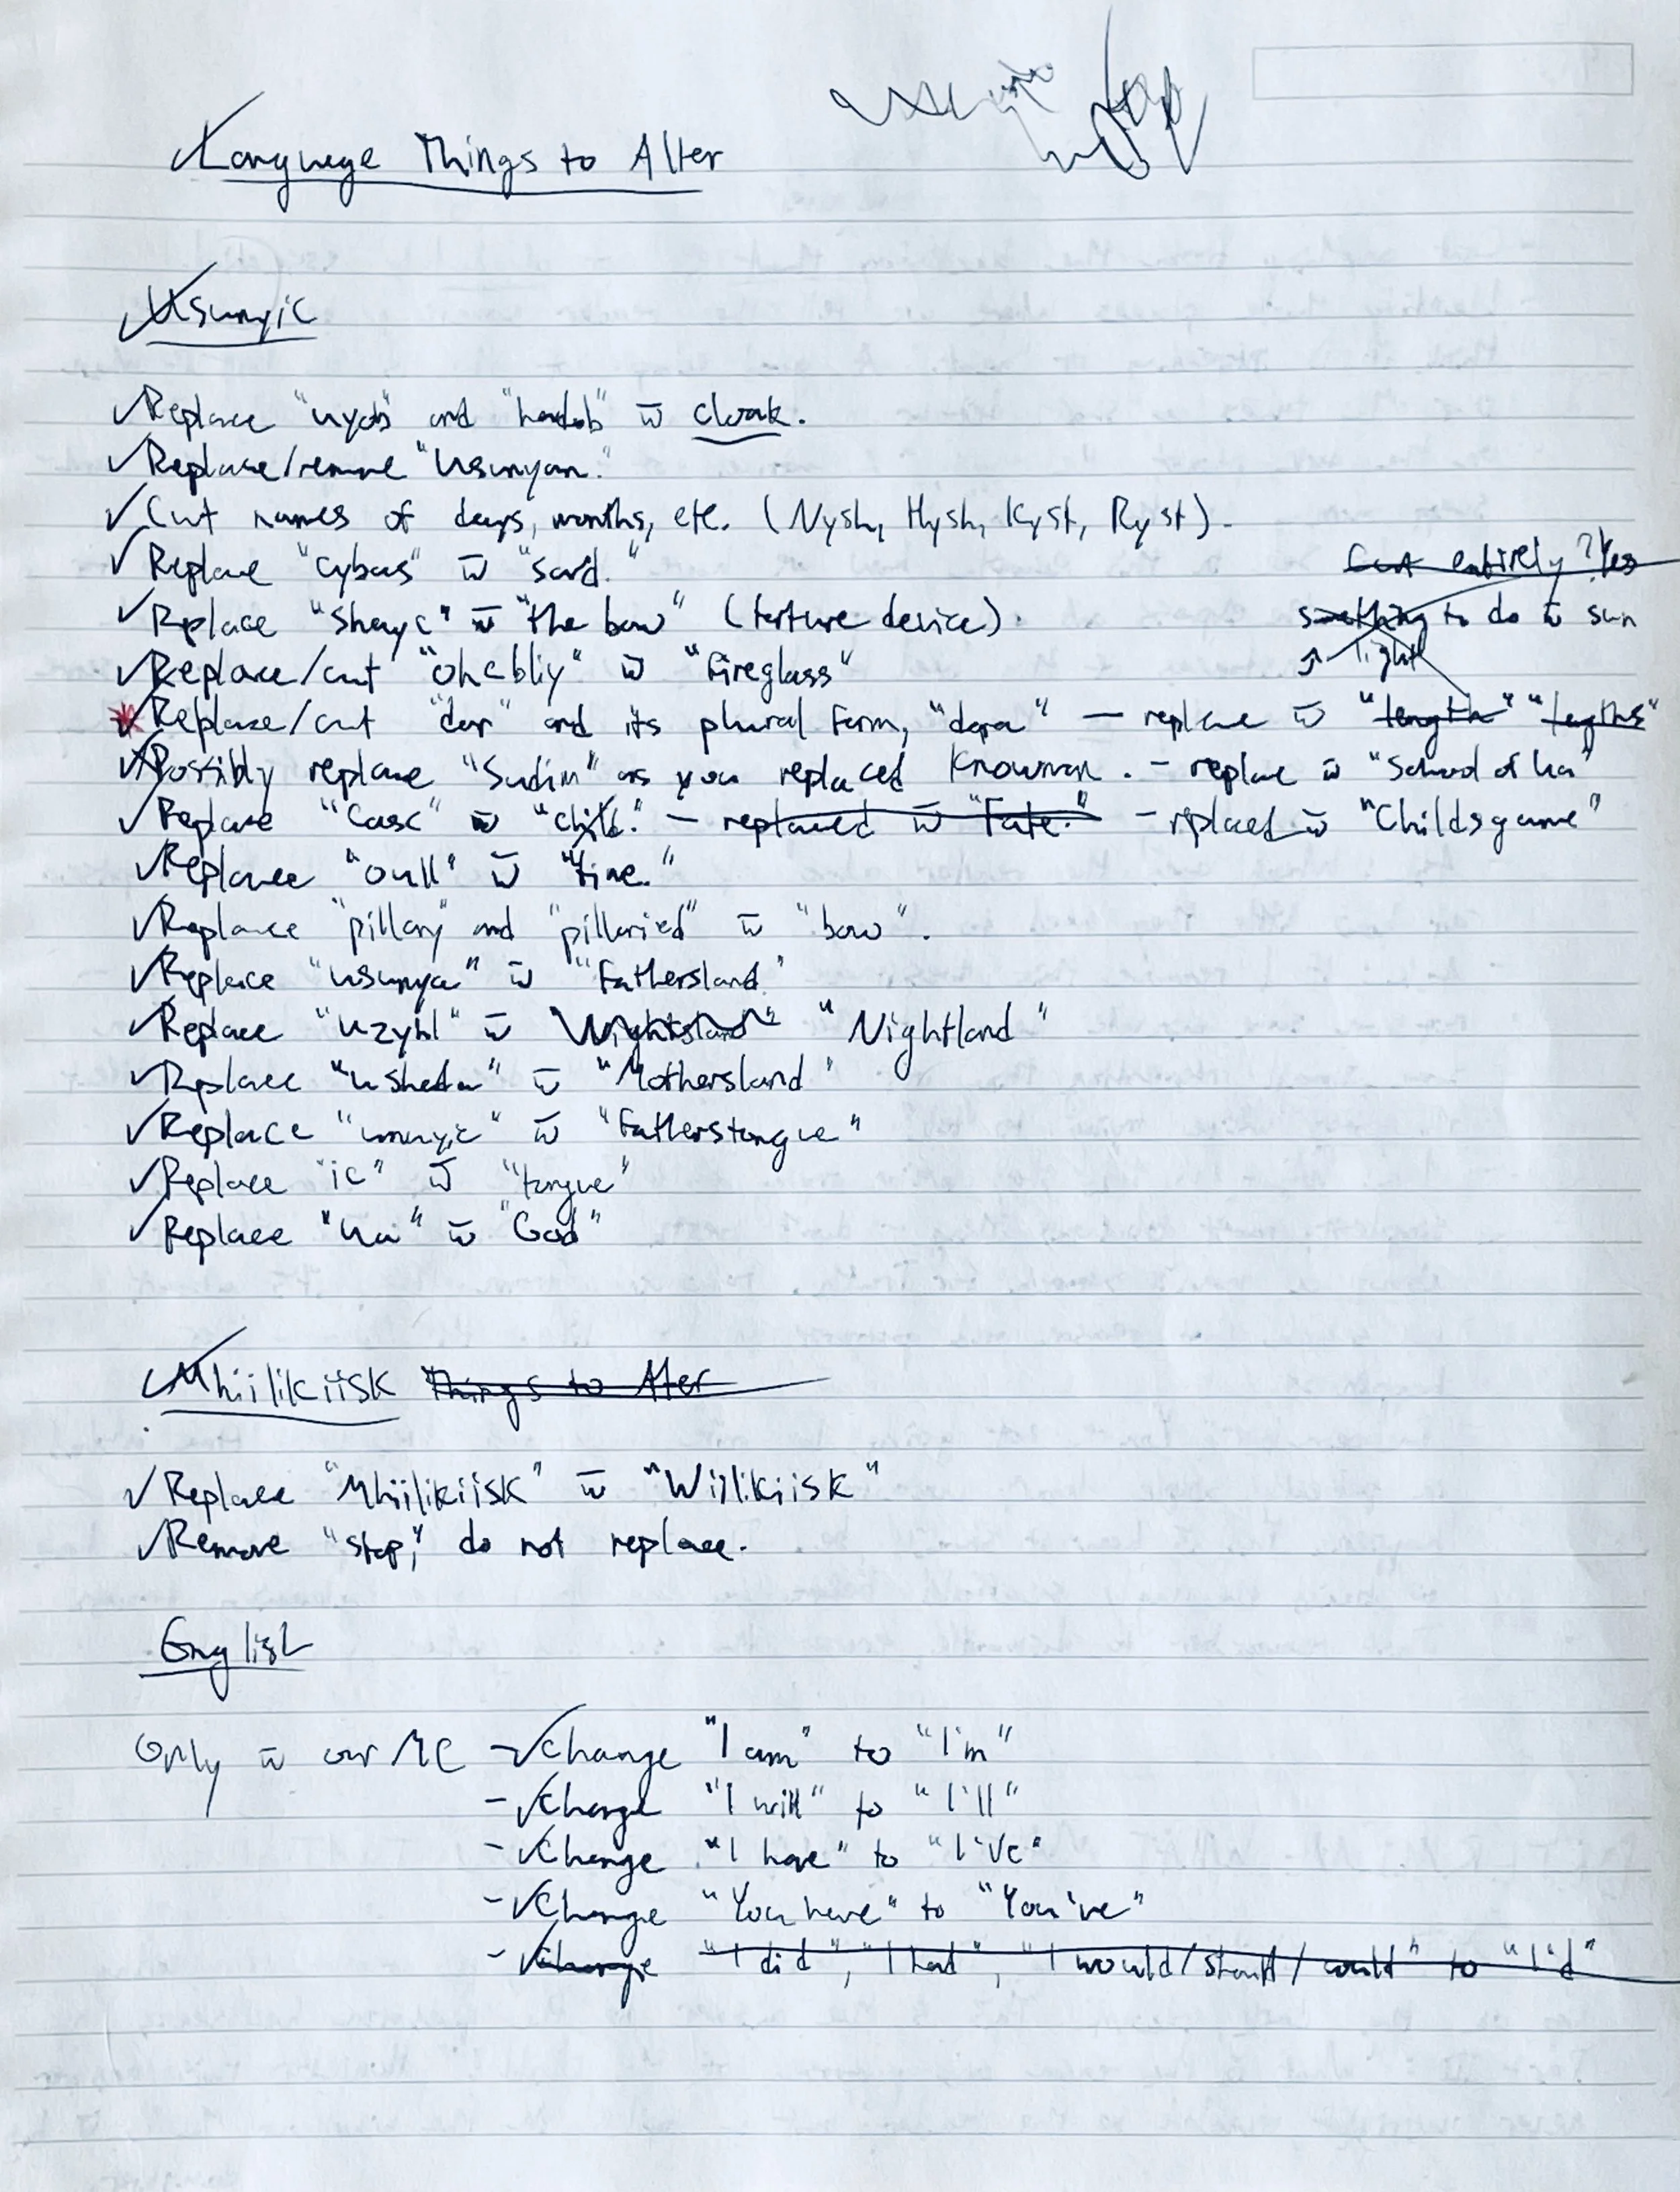 Language Things to Alter
Usunyic
Replace "uyob" and "hadob" w̄ cloak.
Replace/remove "Usunyan."
Cut names of days, months, etc. (Nysh, Hysh, Kyst, Ryst).
Replace "cybas" w̄ "sard."
Cut entirely? Yes
Replace "Shayc" w̄ "the bow" (torture device).
something to do w̄ sun
light
Replace/cut "Ohcbliy" w̄ "fireglass"
Replace/cut "dar" and its plural form, "dara" — replace w̄ "length" "lengths"
Possibly replace "Sudim" as you replaced Knowman. - replace w̄ "School of Ua"
Replace "Casc" w̄ "Child." - replaced w̄ "Fate." - replaced w̄ "Childsgame"
Replace "oull" w̄ "fine."
Replace "pillory" and "pilloried" w̄ "bow".
Replace "usunya" w̄ "Fathersland"
Replace "uzyhl" w̄ "Nightland"
Replace "usheda" w̄ "Mothersland"
Replace w̄ "Fatherstongue"
Replace "ic" w̄ "tongue"
Replace "Ua" w̄ "God"
Mhiilikiisk Things to Alter
Replace "Mhiilikiisk" w̄ "Wiilikiisk"
Remove "stop," do not replace.
English
Only w̄ our MC - Change "I am" to "I'm"
- Change "I will" to "I'll"
- Change "I have" to "I've"
- Change "You have" to "You've"
- Change "I did", "I had", "I would/should/could" to "I'd"